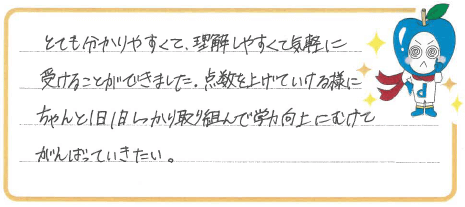 とても分かりやすくて、理解しやすくて気軽に
受けることができました。点数を上げていける様に
ちゃんと1日1日しっかり取り組んで学力向上にむけて
がんばっていきたい。
d